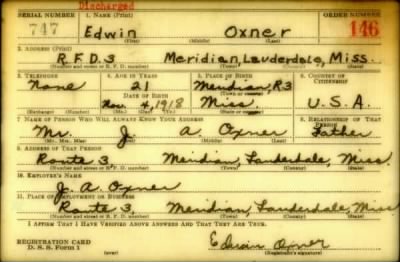 Discharged
SERIAL NUMBER 1. NAME (Print) ORDER NUMBER
747 Edwin Oxner 146
(First) (Middle) (Last)
2. ADDRESS (Print)
R.F.D.3 Meridian, Lauderdale, Miss.
(Number and street or R. F. D. number) (Town) (County) (State)
3. TELEPHONE 4. AGE IN YEARS 5. PLACE OF BIRTH 6. COUNTRY OF CITIZENSHIP
None 21 Meridian, R3
DATE OF BIRTH (Town or county)
Nov. 4, 1918 Miss. U.S.A.
(Exchange) (Number) (Mo.) (Day) (Yr.) (State or country)
7. NAME OF PERSON WHO WILL ALWAYS KNOW YOUR ADDRESS 8. RELATIONSHIP OF THAT PERSON
Mr. J. A. Oxner Father
(Mr., Mrs., Miss) (First) (Middle) (Last)
9. ADDRESS OF THAT PERSON
Route 3, Meridian, Lauderdale, Miss.
(Number and street or R. F. D. number) (Town) (County) (State)
10. EMPLOYER'S NAME
J. A. Oxner
11. PLACE OF EMPLOYMENT OR BUSINESS
Route 3, Meridian, Lauderdale, Miss
(Number and street or R. F. D. number) (Town) (County) (State)
I AFFIRM THAT I HAVE VERIFIED ABOVE ANSWERS AND THAT THEY ARE TRUE.
REGISTRATION CARD Edwin Oxner
D. S. S. Form 1 (over) (Registrant's signature)